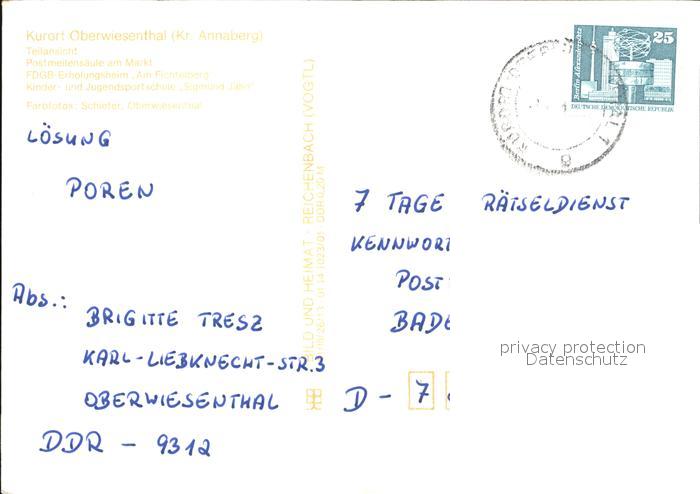 Kurort Oberwiesenthal (Kr. Annaberg)
Teilansicht
Postmeilensäule am Markt
FDGB-Erholungsheim „Am Fichtelberg"
Kinder- und Jugendsportschule „Sigmund Jähn"
Farbfotos: Schiefer, Oberwiesenthal
LÖSUNG
POREN
Abs.:
BRIGITTE TRESZ
KARL-LIEBKNECHT-STR.3
OBERWIESENTHAL
DDR - 9312
BILD UND HEIMAT · REICHENBACH (VOGTL)
01 14 1023/01 DDR 0,20 M
25
Berlin Alexanderplatz
DEUTSCHE DEMOKRATISCHE REPUBLIK
7 TAGE RÄTSELDIENST
KENNWORT
POST
BADE
D - 7
privacy protection
Datenschutz